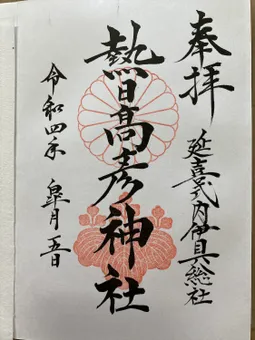 奉拝
延喜式内伊具総社
熱日高彦神社
令和四年
皐月五日